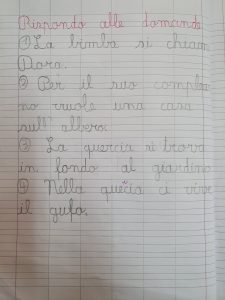 Rispondo alle domande
① La bimba si chiam
Dora.
② Per il suo complea
no vuole una casa
sull' albero.
③ La quercia si trova
in fondo al giardino
④ Nella quecia ci vive
il gufo.